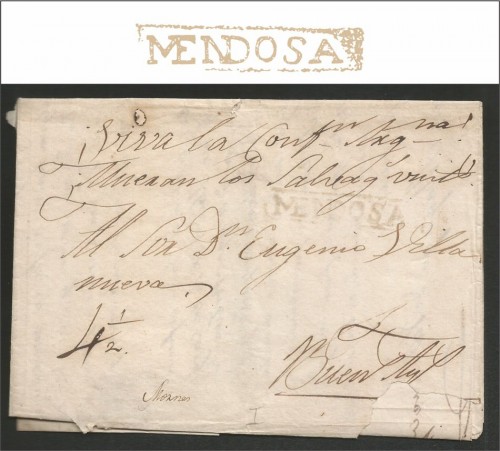 MENDOSA
¡Viva la Confn. Argna!
¡Mueran los Salvags. Units!
MENDOSA
Al Sor. Dn. Eugenio Villa
nueva.
4 1/2.
Buens. Ays.